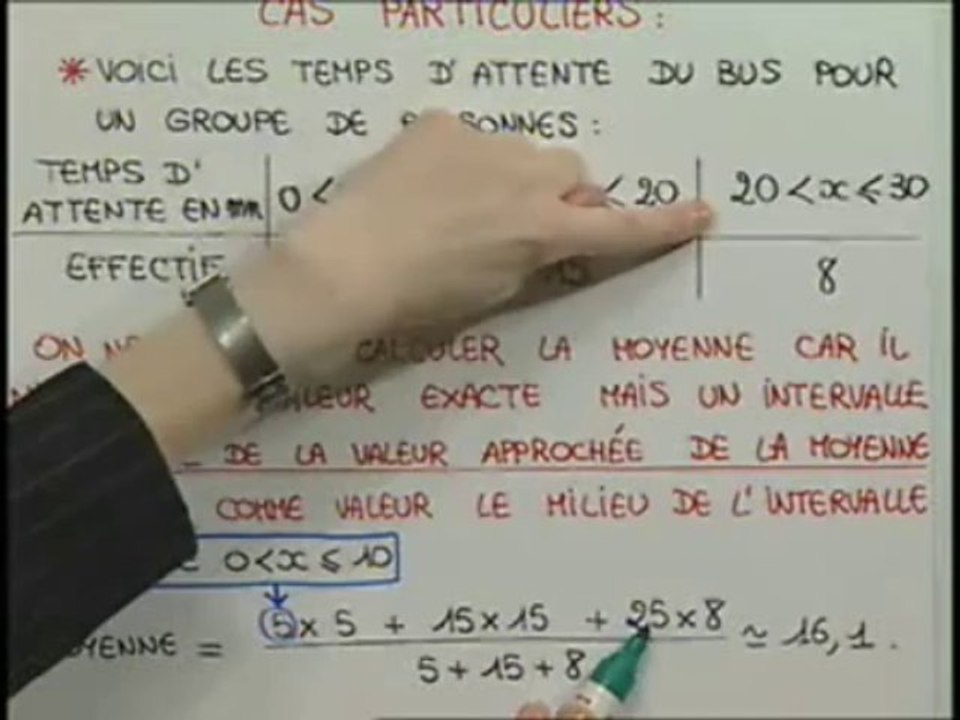 CAS PARTICULIERS :
* VOICI LES TEMPS D'ATTENTE DU BUS POUR
UN GROUPE DE SONNES :
TEMPS D'
ATTENTE EN mn 0 < < 20 20 < x ⩽ 30
EFFECTIF 8
ON CALCULER LA MOYENNE CAR IL
VALEUR EXACTE MAIS UN INTERVALLE
DE LA VALEUR APPROCHÉE DE LA MOYENNE
COMME VALEUR LE MILIEU DE L'INTERVALLE
0 < x ⩽ 10
MOYENNE = 5 x 5 + 15 x 15 + 25 x 8 ≃ 16,1 .
5 + 15 + 8